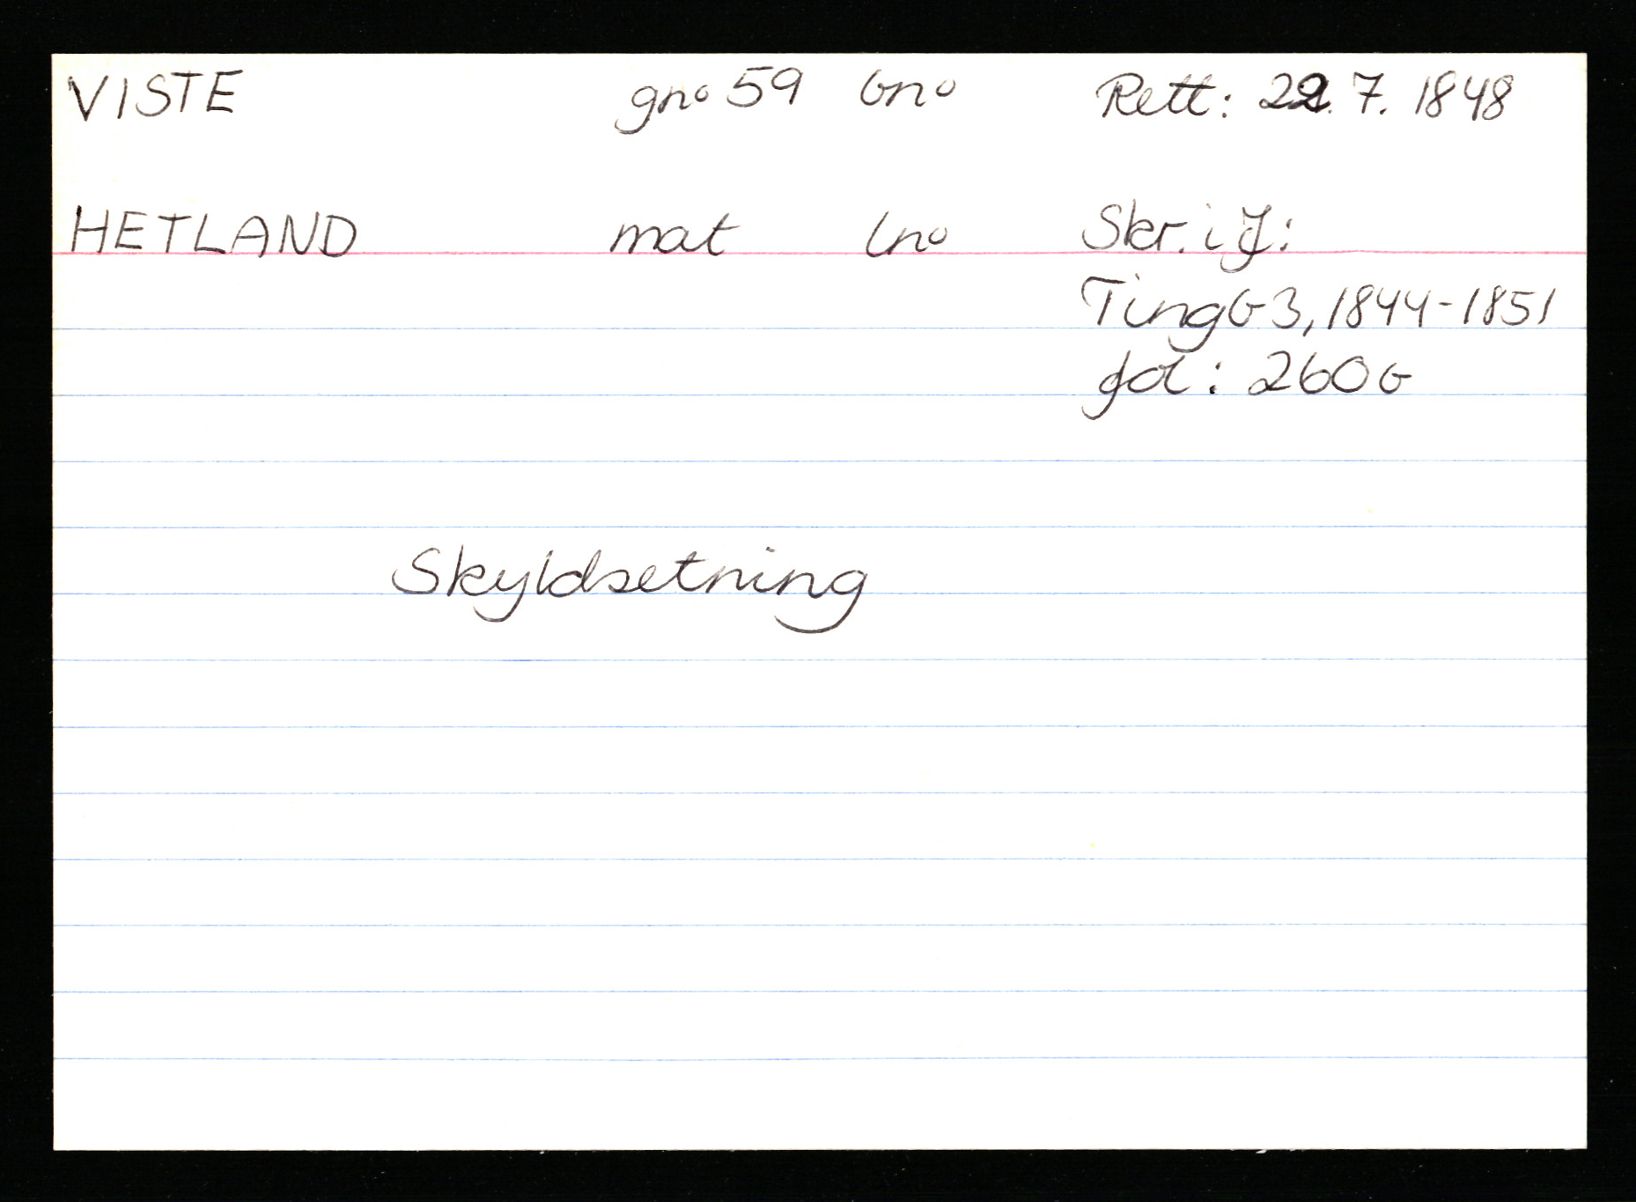 VISTE gno 59 bno Rett: 22. 7. 1848
HETLAND mat lno Skr. i J:
Tingb 3, 1844-1851
fol: 260b
Skyldsetning